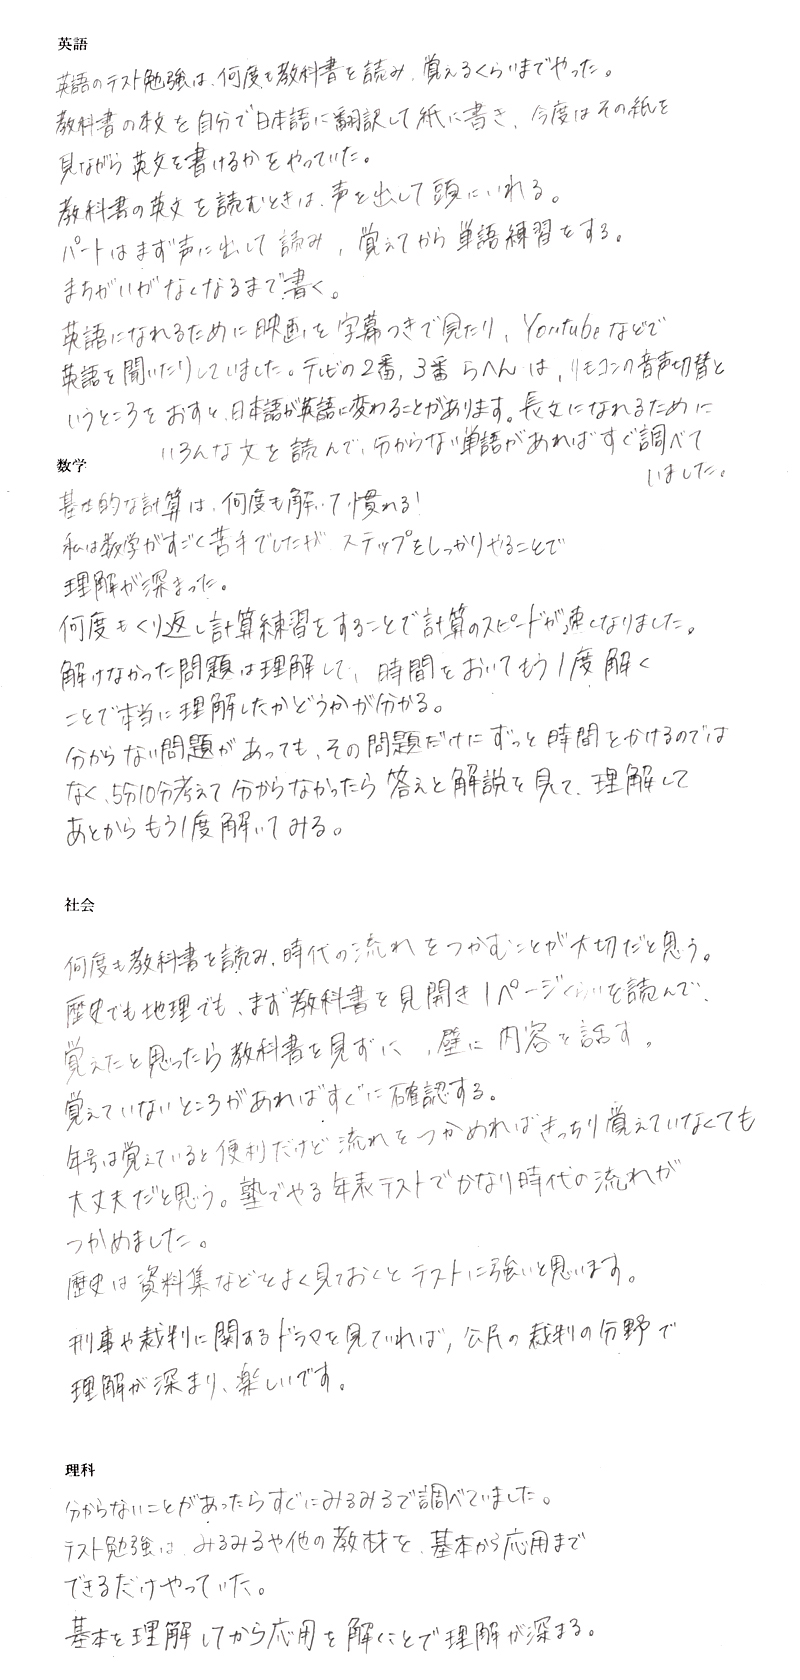 英語
英語のテスト勉強は、何度も教科書を読み、覚えるくらいまでやった。
教科書の本文を自分で日本語に翻訳して紙に書き、今度はその紙を
見ながら英文を書けるかをやっていた。
教科書の英文を読むときは、声を出して頭にいれる。
パートはまず声に出して読み、覚えてから単語練習をする。
まちがいがなくなるまで書く。
英語になれるために映画を字幕つきで見たり、Youtubeなどで
英語を聞いたりしていました。テレビの2番、3番らへんは、リモコンの音声切替と
いうところをおすと、日本語が英語に変わることがあります。長文になれるために
いろんな文を読んで、分からない単語があればすぐ調べて
いました。
数学
基本的な計算は、何度も解いて慣れる!
私は数学がすごく苦手でしたが ステップをしっかりやることで
理解が深まった。
何度もくり返し計算練習をすることで計算のスピードが速くなりました。
解けなかった問題は理解して、時間をおいてもう1度解く
ことで本当に理解したかどうかが分かる。
分からない問題があっても、その問題だけにずっと時間をかけるのでは
なく、5分10分考えて分からなかったら答えと解説を見て、理解して
あとからもう1度解いてみる。
社会
何度も教科書を読み、時代の流れをつかむことが大切だと思う。
歴史でも地理でも、まず教科書を見開き1ページくらいを読んで、
覚えたと思ったら教科書を見ずに、壁に内容を話す。
覚えていないところがあればすぐに確認する。
年号は覚えていると便利だけど流れをつかめればきっちり覚えていなくても
大丈夫だと思う。塾でやる年表テストでかなり時代の流れが
つかめました。
歴史は資料集などをよく見ておくとテストに強いと思います。
刑事や裁判に関するドラマを見ていれば、公民の裁判の分野で
理解が深まり、楽しいです。
理科
分からないことがあったらすぐにみるみるで調べていました。
テスト勉強は、みるみるや他の教材を、基本から応用まで
できるだけやっていた。
基本を理解してから応用を解くことで理解が深まる。